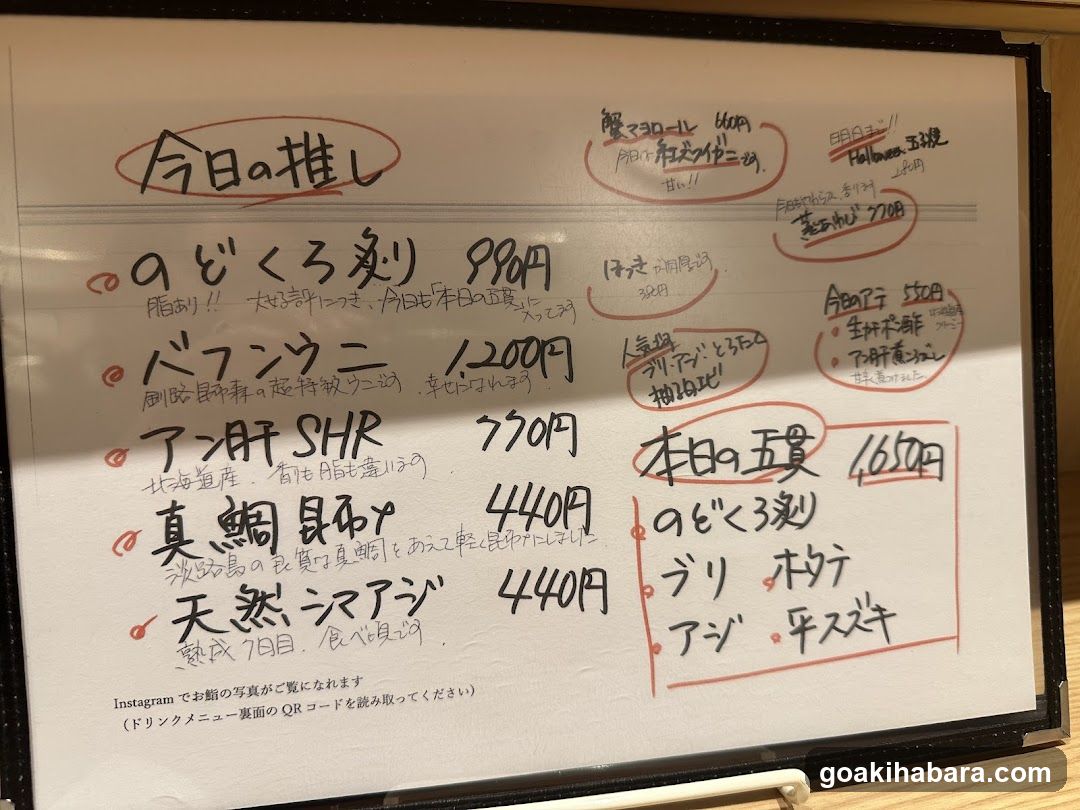 今日の推し
のどくろ炙り 990円
脂あり!! 大好評につき、今日も「本日の五貫」に入ってます
バフンウニ 1,200円
釧路昆布森の超特級ウニです。幸せになれます。
アン肝SHR 770円
北海道産。香りも脂も違います。
真鯛昆布〆 440円
淡路島の良質な真鯛をあえて軽く昆布〆にしました
天然シマアジ 440円
熟成7日目。食べ頃です。
Instagramでお鮨の写真がご覧になれます
(ドリンクメニュー裏面のQRコードを読み取ってください)
蟹マヨロール 660円
今日は紅ズワイガニです。
甘い!!
Halloween玉子焼
280円
蒸しあわび 770円
ほっき
380円
今日のアテ 550円
生ガキポン酢
アン肝煮
人気
ブリ・アジ・とろたく
本日の五貫 1,650円
のどくろ炙り
ブリ ホタテ
アジ 平スズキ
goakihabara.com